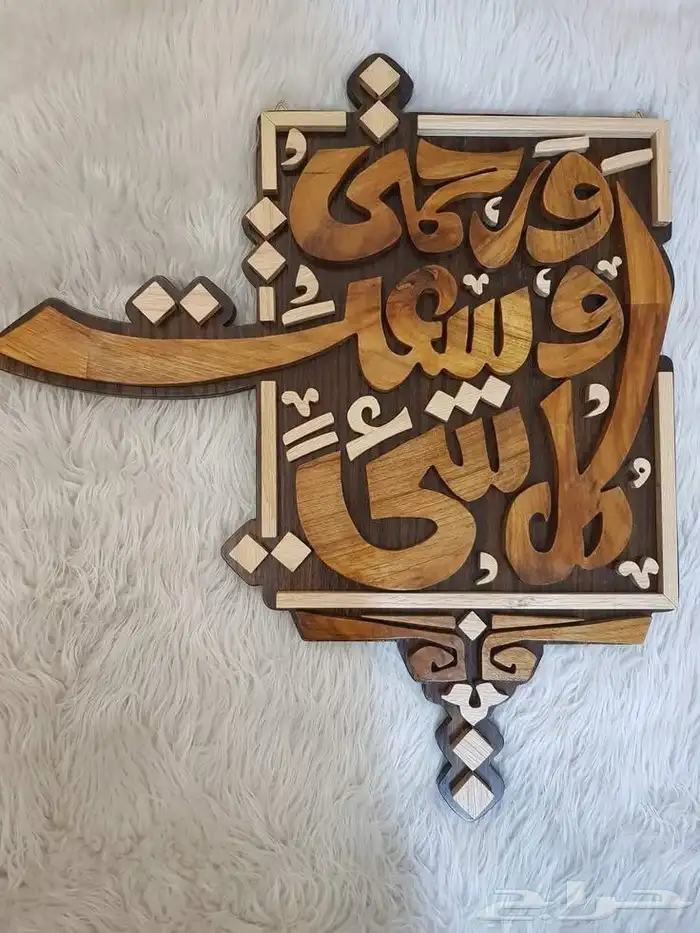 ورحمتي
وسعت
كل شيء
حراج